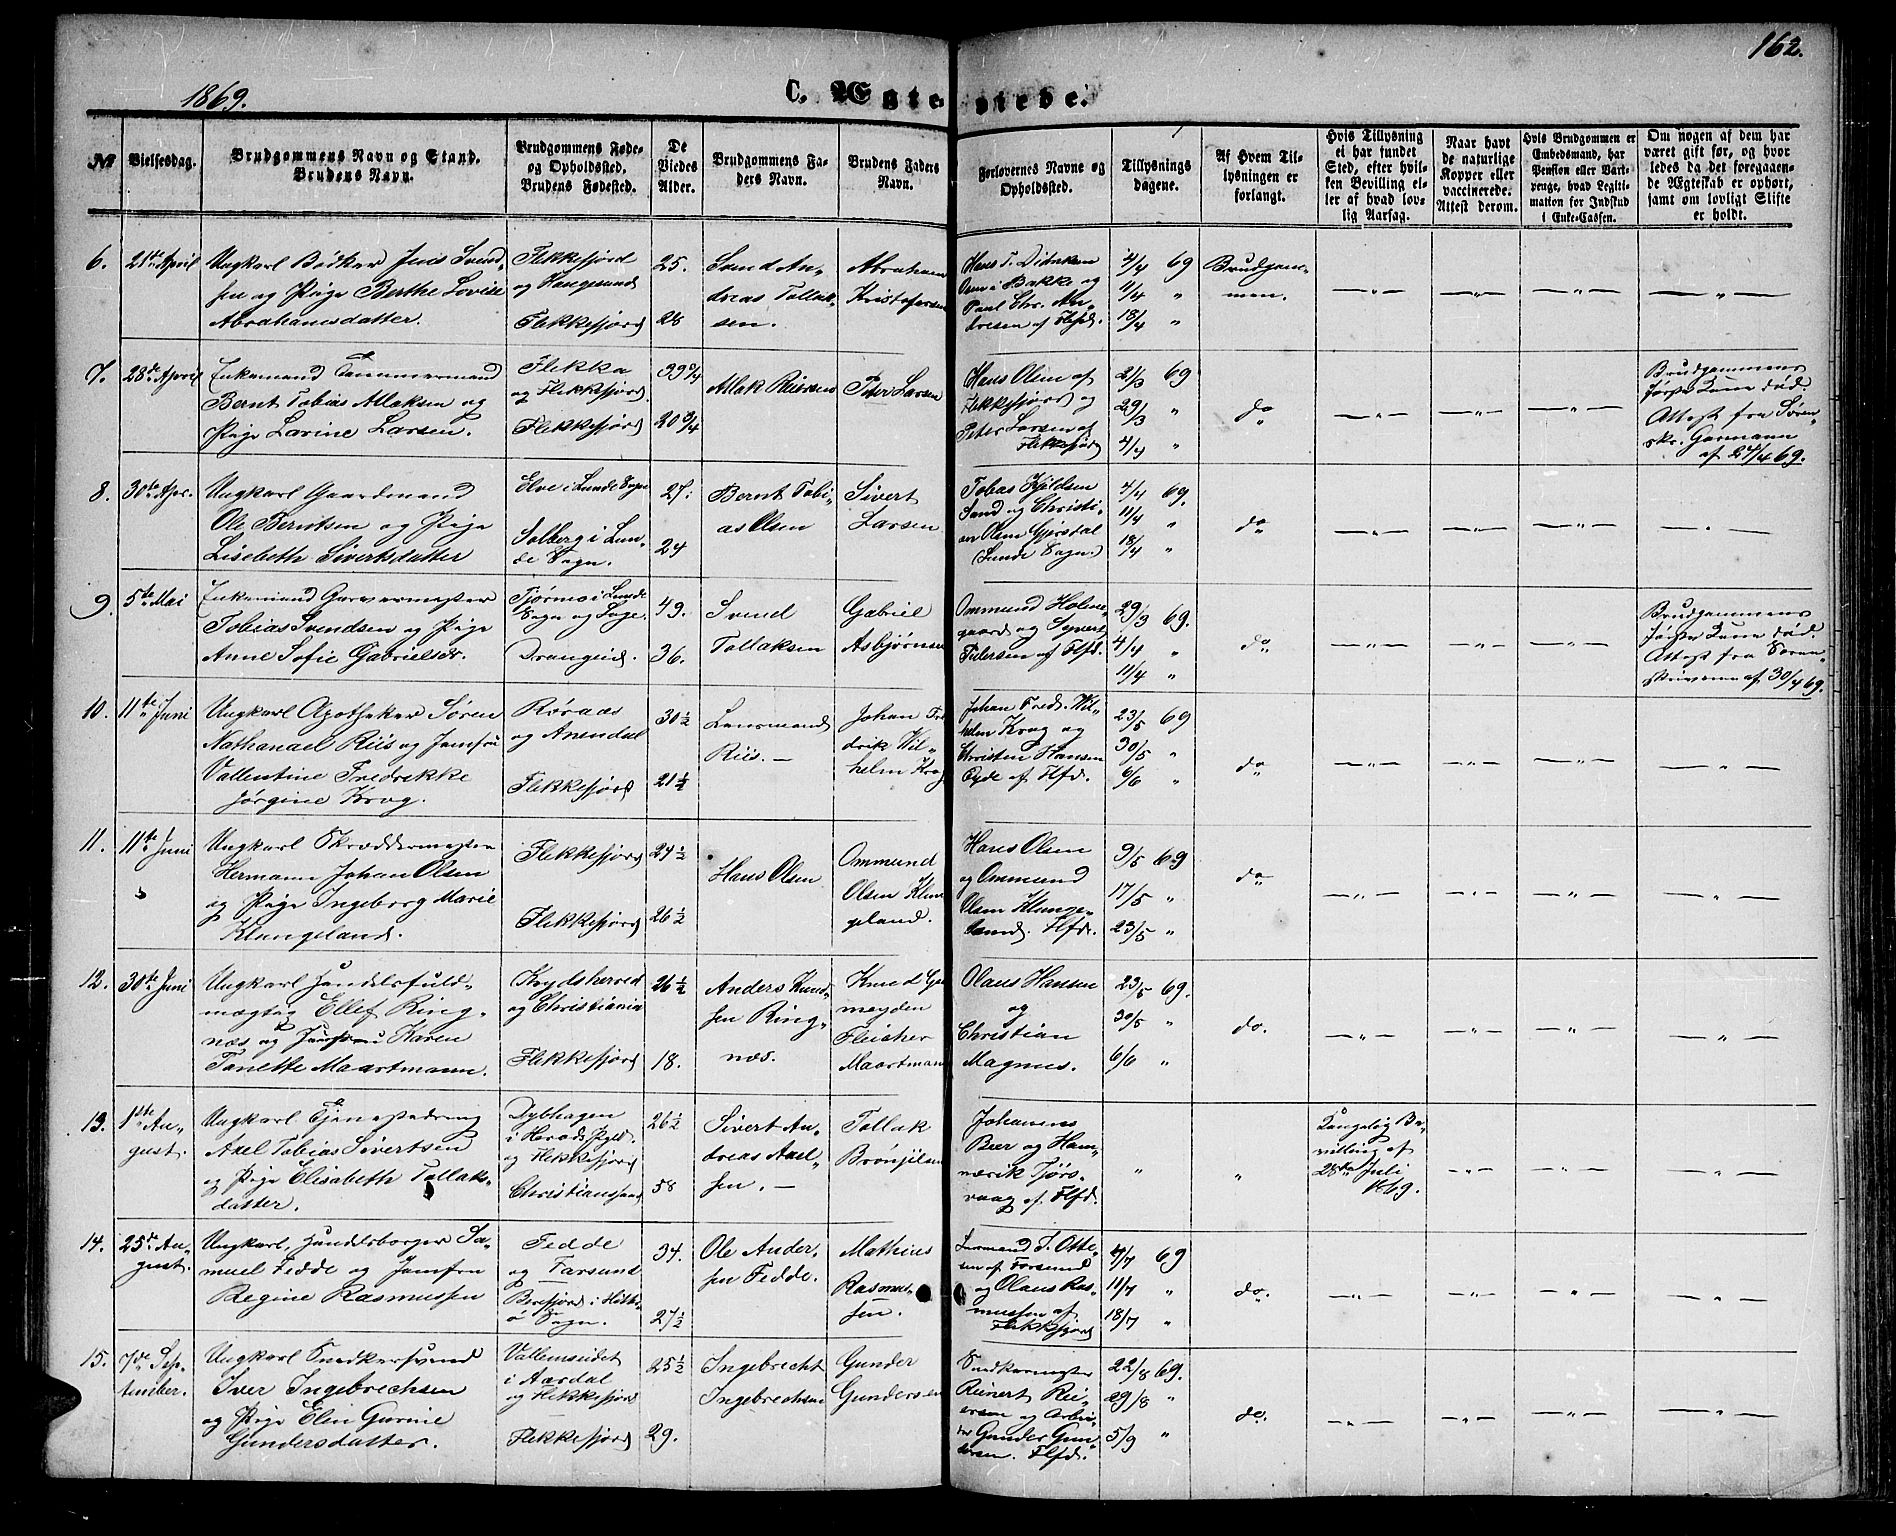 162.
1869.
C. Ægteviede.
№
Vielsesdag.
Brudgommens Navn og Stand.
Brudens Navn.
Brudgommens Føde-
og Opholdssted.
Brudens Fødested.
De
Viedes
Alder.
Brudgommens Fa-
ders Navn.
Brudens Faders
Navn.
Forlovernes Navne og
Opholdssted.
Tillysnings
dagene.
Af Hvem Til-
lysningen er
forlangt.
Hvis Tillysning
ei har fundet
Sted, efter hvil-
ken Bevilling el-
ler af hvad lov-
lig Aarsag.
Naar havt
de naturlige
Kopper eller
vaccinerede.
Attest derom.
Hvis Brudgommen er
Embedsmand, har
Pension eller Vart-
penge, hvad Legiti-
mation for Indskud
i Enke-Cassen.
Om nogen af dem har
været gift før, og hvor
ledes da det foregaaen-
de Ægteskab er ophørt,
samt om lovligt Skifte
er holdt.
6.
21de April
Ungkarl Bødker Jens Svend-
sen og Pige Berthe Lovise
Abrahamsdatter.
Flekkefjord
og Haugesund
Flekkefjord
25.
28
Svend An-
dreas Tollak-
sen.
Abraham
Kristofersen
Hans T. Didriksen
Osen i Bakke og
Paul Chr. An-
dresen af Flfd.
4/4 69
11/4 "
18/4 "
Brudgom-
men.
7.
28de April
Enkemand Tømmermand
Bernt Tobias Atlaksen og
Pige Larine Larsen.
Flekka
og Flekkefjord
Flekkefjord
39 3/4
20 3/4
Atlak Reiersen
Peter Larsen
Hans Olsen af
Flekkefjord og
Peter Larsen af
Flekkefjord
21/3 69
29/3 "
4/4 "
do
Brudgommens
første Kone død.
Attest fra Soren-
skr. Garmann
af 27/4 69.
8.
30te Apr.
Ungkarl Gaardmand
Ole Berntsen og Pige
Lisebeth Sivertsdatter
Elve i Lunde Sogn
Solberg i Lun-
de Sogn.
27.
24
Bernt Tobi-
as Olsen
Sivert
Larsen
Tobias Kjeldsen
Sand og Christi-
an Olsen Gjersdal
Lunde Sogn.
4/4 69.
11/4 "
18/4 "
do
9.
5te Mai
Enkemand Garvermester
Tobias Svendsen og Pige
Anne Sofie Gabrielsdr.
Tjørmo i Lunde
Sogn og Soge.
Drangeid.
49.
36.
Svend
Tollaksen
Gabriel
Asbjørnsen
Ommund Holme-
gaard og Syvert
Pedersen af Flfd.
29/3 69.
4/4 "
11/4 "
do
Brudgommens
første Kone død.
Attest fra Soren-
skriveren af 30/4 69.
10.
11te Juni
Ungkarl Apotheker Søren
Nathanael Riis og Jomfru
Vallentine Fredrekke
Jørgine Krog.
Røraas
og Arendal
Flekkefjord
30 1/2
21 1/2
Lensmand
Riis. —
Johan Fre
drik Wil-
helm Krog
Johan Fredr. Wil-
helm Krog og
Christen Hansen
Eyde af Flfd.
23/5 69
30/5 "
6/6 "
do
11.
11te Juni
Ungkarl Skræddermester
Hermann Johan Olsen
og Pige Ingeborg Marie
Klungeland.
Flekkefjord
Flekkefjord
24 1/2
26 1/2
Hans Olsen
Ommund
Olsen Klun
geland.
Hans Olsen
og Ommund
Olsen Klunge-
land. Flfd.
9/5 69
17/5 "
23/5 "
do
12.
30te Juni
Ungkarl Handelsfuld-
mægtig Ellef Ring-
næs og Jomfru Karen
Tanette Maartmann.
Krydsherred
og Christiania
Flekkefjord
26 1/2
18.
Anders Knud-
sen Ring-
næs.
Knud Ge
meyden
Fleischer
Maartmann
Olaus Hansen
og
Christian
Magnus.
23/5 69.
30/5 "
6/6 "
do.
13.
1ste Au-
gust.
Ungkarl Tjenestedreng
Axel Tobias Sivertsen
og Pige Elisabeth Tollaks-
datter.
Dybhagen
i Herads Pgld.
og Flekkefjord
Christianssand
26 1/2
58
Sivert An-
dreas Axel-
sen. —
Tollak
Brønjelsen
Johannes
Beer og Hen-
nerik Tjørs-
vaag af Flfd.
Kongelig Be-
villing af
28de Juli
1869.
14.
25de Au-
gust.
Ungkarl, Handelsborger Sa-
muel Fedde og Jomfru
Regine Rasmussen
Fedde
og Farsund
Berefjord i Hitter
ø Sogn.
34.
27 1/2
Ole Ander-
sen Fedde.
Mathias
Rasmus-
sen.
T. Otte-
sen af Farsund
og Olaus Ras-
mussen af
Flekkefjord
4/7 69
11/7 "
18/7 "
do.
15.
7de Sep-
tember.
Ungkarl Snedkersvend
Iver Ingebrechsen
og Pige Elen Gurine
Gundersdatter.
Vallemseidet
i Aardal
og Flekkefjord
Flekkefjord
25 1/2
29.
Ingebrecht
Ingebrechsen
Gunder
Gundersen
Snedkermester
Reinert Rei-
ersen og Arbei-
der Gunder Gun-
dersen. Flfd.
22/8 69.
29/8 "
5/9 "
do.